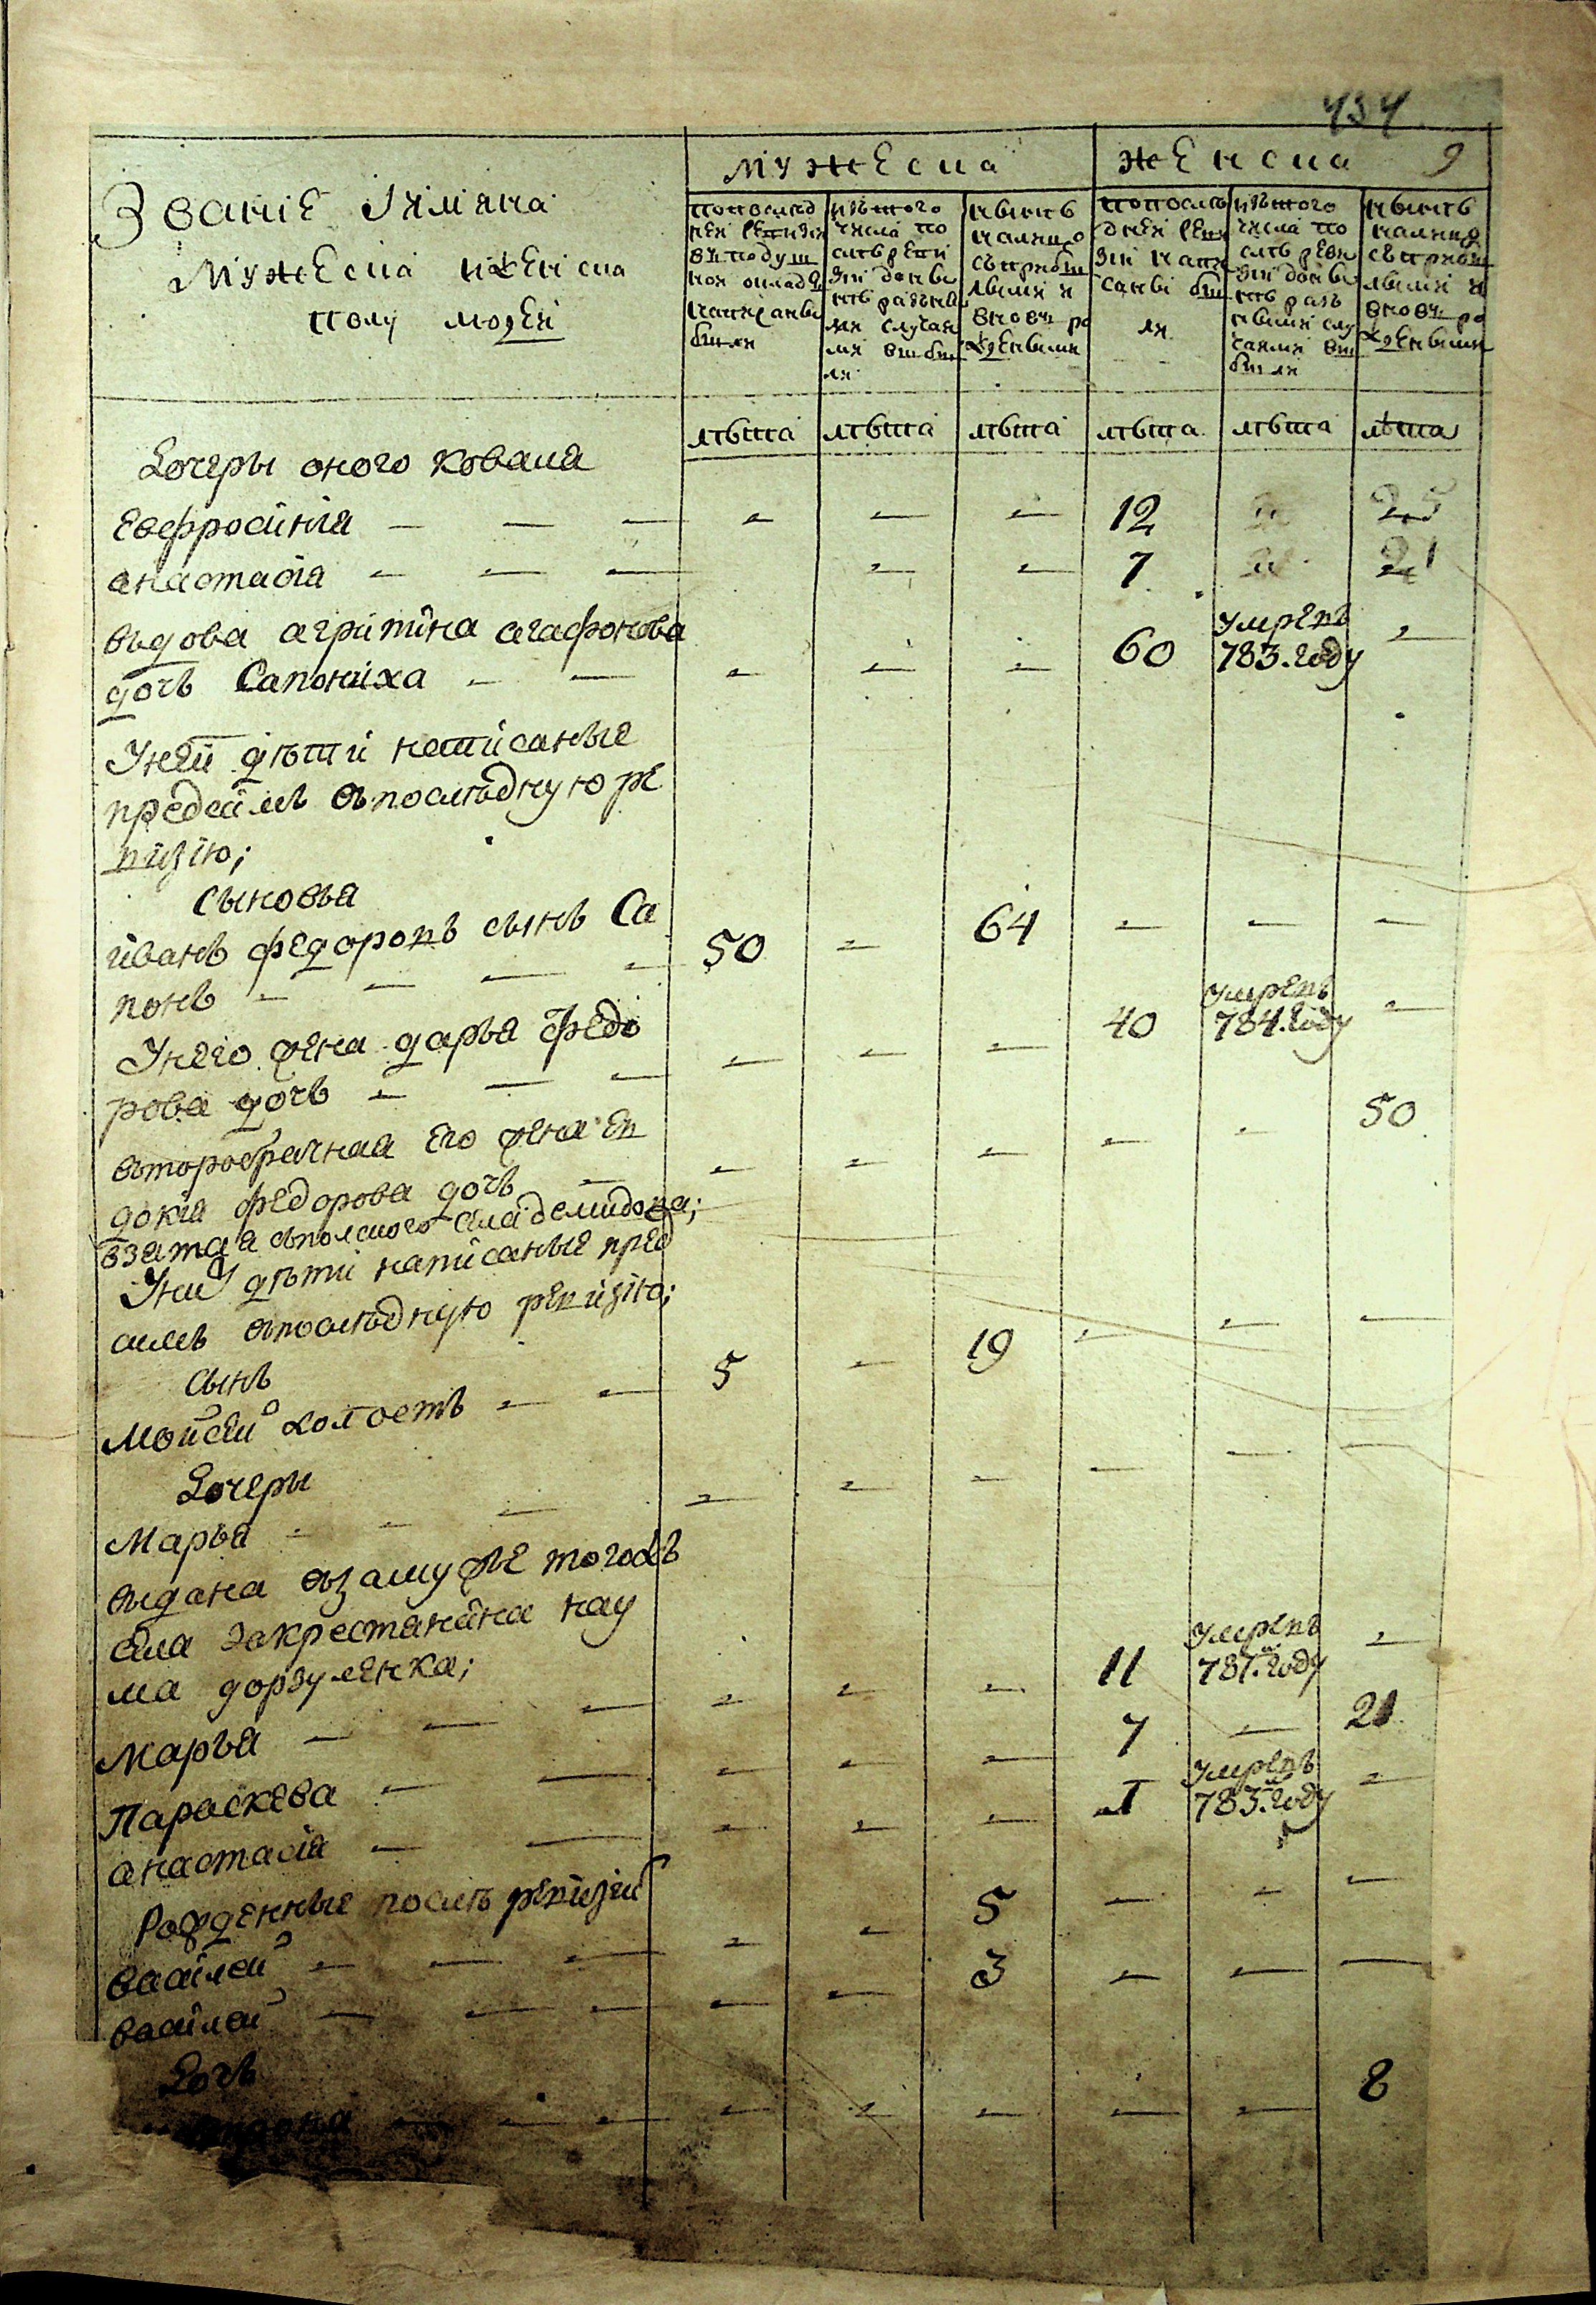 434
9
Званiе Iимяна
Мужеска иженска
полу людей
мужеска
женска
попослѣд
ней ревизiи
вподуш
ной окладъ
написанны
были
изътого
числа по
слѣ реви
зiи доны
нѣ разны
ми случая
ми выбы
ли
нынѣ
налицо
съприбы
лыми и
вновь ро
жденными
попослѣ
дней реви
зiи напи
санны бы
ли
изътого
числа по
слѣ реви
зiи доны
нѣ раз
ными слу
чаями вы
были
нынѣ
налицо
съприбы
лыми и
вновь ро
жденными
лѣта лѣта лѣта лѣта лѣта лѣта
Дочеры оного Ковала
Евфросинiя — — — — — — 12 25
анастасiя — — — — — 7 21
въдова агрипина агафонова
дочь Сапониха — — — — — 60 умре въ 783. году —
Уней дѣти написаные
предсимъ въпослѣдную ре
визiю;
сыновья
иванъ федоровъ сынъ Са
понъ — — — — 50 — 64 — — —
Унего жена дарья федо
рова дочь — — — — — — 40 умре въ 784. году —
второбрачная его жена ев
докiя федорова дочь — — — — — — 50
взятая сполского села демидова;
Уних дѣти написаные пред
симъ въпослѣдную ревизiю;
сынъ
Мойсей холостъ — — 5 — 19 — — —
Дочеры
Марья — — — — — — — — —
выдана взамужье тогожъ
села закрестянина нау
ма дорзуленка;
Марья — — — — — — 11 умре въ 787. году —
Параскева — — — — — 7 — 21
анастасiя — — — — — 1 умре въ 783. году —
Рожденные послѣ ревизiи
василей — — — — — 5 — — —
василей — — — — — 3 — — —
Дочь
— — — — — — — — 8